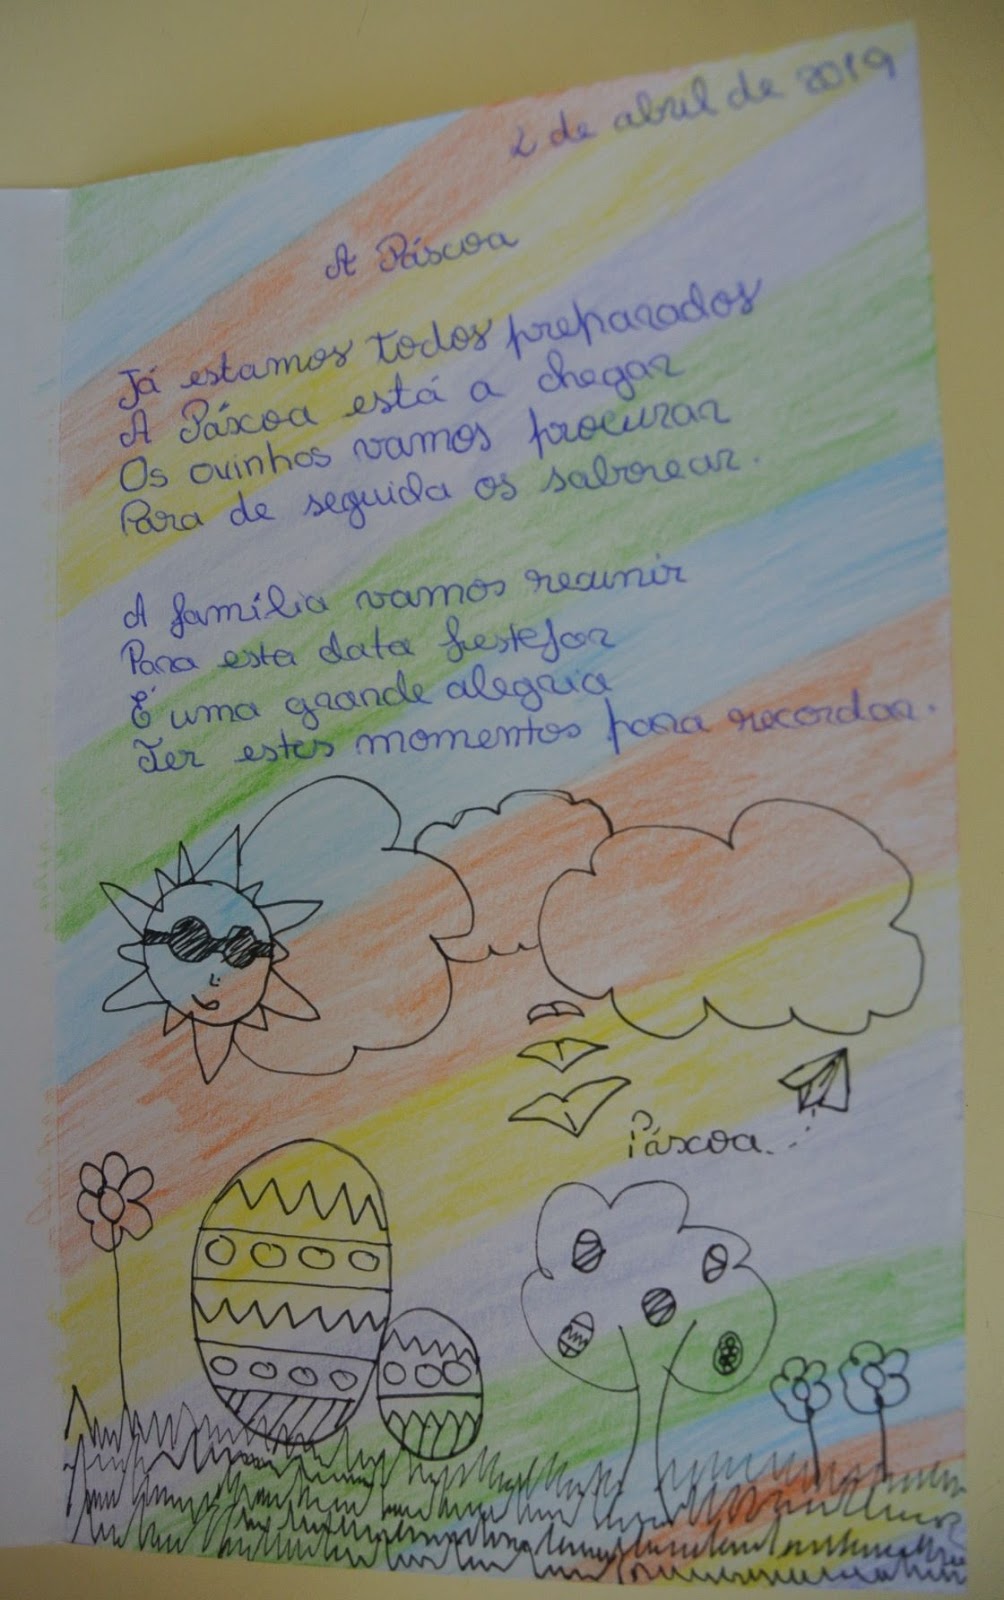 2 de abril de 2019
A Páscoa
Já estamos todos preparados
A Páscoa está a chegar
Os ovinhos vamos procurar
Para de seguida os saborear.
A família vamos reunir
Para esta data festejar
É uma grande alegria
Ter estes momentos para recordar.
Páscoa...